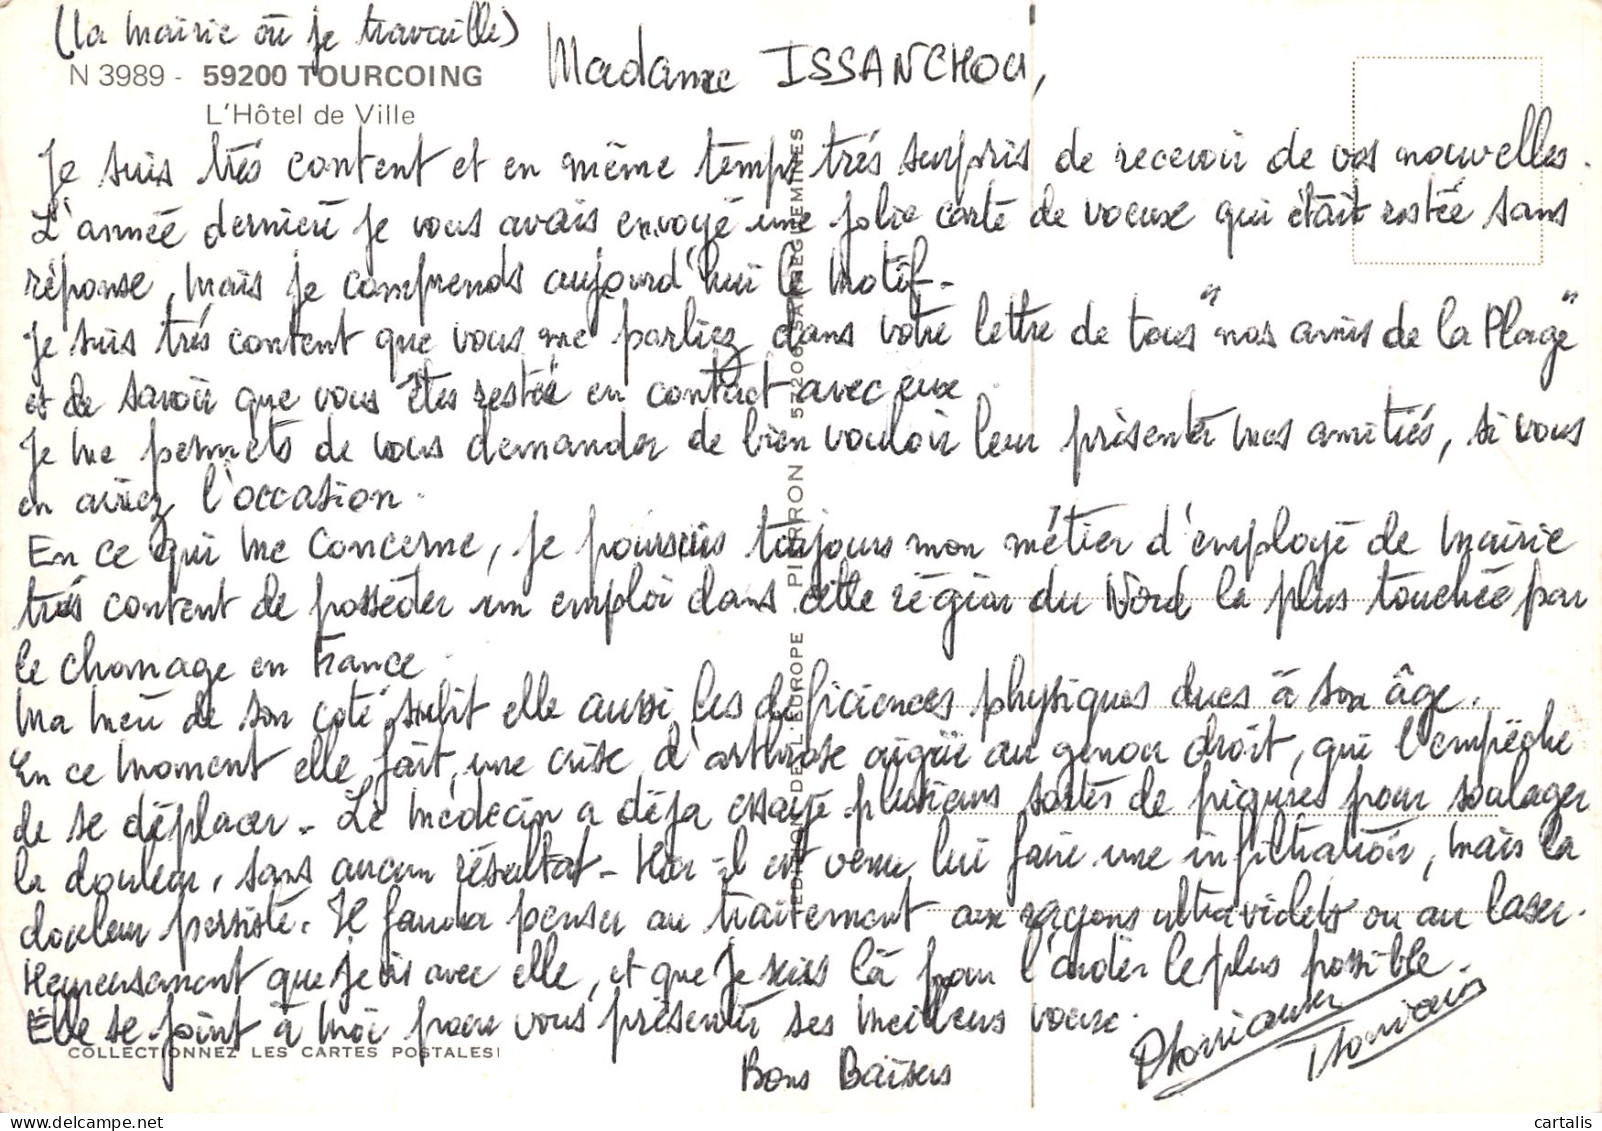 (la mairie où je travaille)
N 3989 - 59200 TOURCOING
L'Hôtel de Ville
Madame ISSANCHOU,
Je suis trés content et en même temps trés surpris de recevoir de vos nouvelles.
L'année dernière je vous avais envoyé une jolie carte de voeux qui était restée sans
réponse, mais je comprends aujourd'hui le motif.
Je suis trés content que vous me parliez dans votre lettre de tous "nos amis de la Plage"
et de savoir que vous êtes restée en contact avec eux
Je me permets de vous demander de bien vouloir leur présenter mes amitiés, si vous
en aviez l'occasion.
En ce qui me concerne, je poursuis toujours mon métier d'employé de mairie
trés content de posséder un emploi dans cette région du Nord la plus touchée par
le chomage en France.
Ma mère de son coté subit elle aussi les déficiences physiques dues à son âge.
En ce moment elle fait une crise d'arthrose aigüe au genou droit, qui l'empêche
de se déplacer. Le médecin a déja essayé plusieurs sortes de piqures pour soulager
la douleur, sans aucun résultat - Hier il est venu lui faire une infiltration, mais la
douleur persiste. Il faudra penser au traitement aux rayons ultraviolets ou au laser.
Heureusement que je vis avec elle, et que je suis là pour l'aider le plus possible.
Elle se joint à moi pour vous présenter ses meilleurs voeux.
Bons Baisers
COLLECTIONNEZ LES CARTES POSTALES!
EDITIONS DE L'EUROPE PIERRON 57206 SARREGUEMINES
cartalis